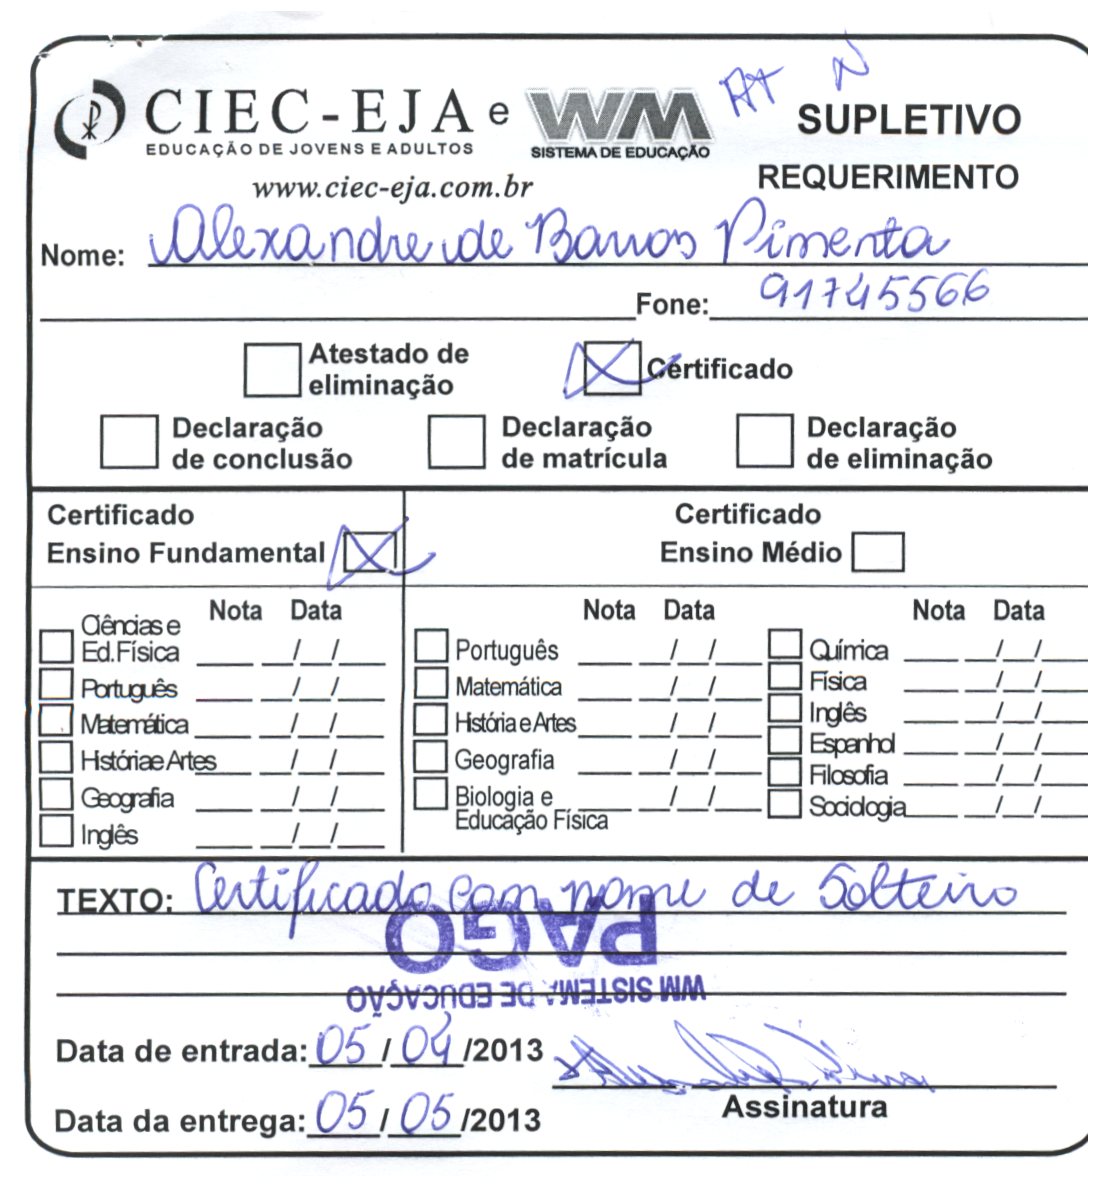 CIEC-EJA e WM
EDUCAÇÃO DE JOVENS E ADULTOS
SISTEMA DE EDUCAÇÃO
www.ciec-eja.com.br
SUPLETIVO
REQUERIMENTO
Nome: Alexandre de Barros Pimenta
Fone: 91745566
Atestado de eliminação
Certificado
Declaração de conclusão
Declaração de matrícula
Declaração de eliminação
Certificado
Ensino Fundamental
Nota Data
Ciências e
Ed.Física ____ __/__/____
Português ____ __/__/____
Matemática ____ __/__/____
História e Artes ____ __/__/____
Geografia ____ __/__/____
Inglês ____ __/__/____
Certificado
Ensino Médio
Nota Data
Português ____ __/__/____
Matemática ____ __/__/____
História e Artes ____ __/__/____
Geografia ____ __/__/____
Biologia e ____ __/__/____
Educação Física
Nota Data
Química ____ __/__/____
Física ____ __/__/____
Inglês ____ __/__/____
Espanhol ____ __/__/____
Filosofia ____ __/__/____
Sociologia ____ __/__/____
TEXTO: Certificado com nome de Solteiro
PAGO
WM SISTEMA DE EDUCAÇÃO
Data de entrada: 05/04/2013
Assinatura
Data da entrega: 05/05/2013